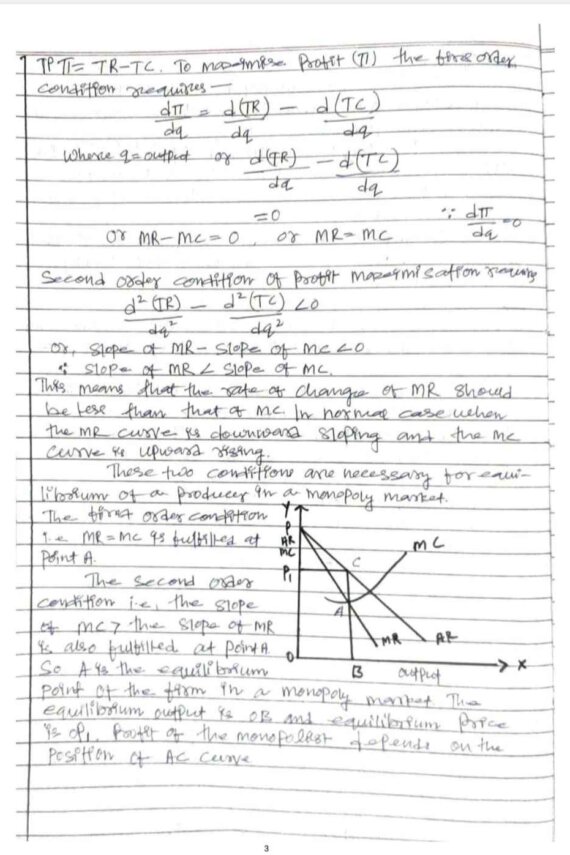 TP π = TR-TC. To maximise Profit (π) the first order
condition requires —
dπ/dq = d(TR)/dq - d(TC)/dq
Where q = output or d(TR)/dq - d(TC)/dq
= 0 ∵ dπ/dq = 0
or MR-MC = 0 or MR = MC
Second order condition of Profit maximisation requires
d²(TR)/dq² - d²(TC)/dq² < 0
or, slope of MR - slope of MC < 0
∴ slope of MR < slope of MC.
This means that the rate of change of MR should
be less than that of MC. In normal case when
the MR curve is downward sloping and the MC
curve is upward rising.
These two conditions are necessary for equi-
librium of a producer in a monopoly market.
The first order condition
i.e MR = MC is fulfilled at
Point A.
The second order
condition i.e, the slope
of MC > the slope of MR
is also fulfilled at point A.
So A is the equilibrium
point of the firm in a monopoly market The
equilibrium output is OB and equilibrium Price
is OP₁. Profit of the monopolist depends on the
position of AC curve
Y
P
AR
MC
P₁
C
MC
A
MR
AR
O
B
output
X
3